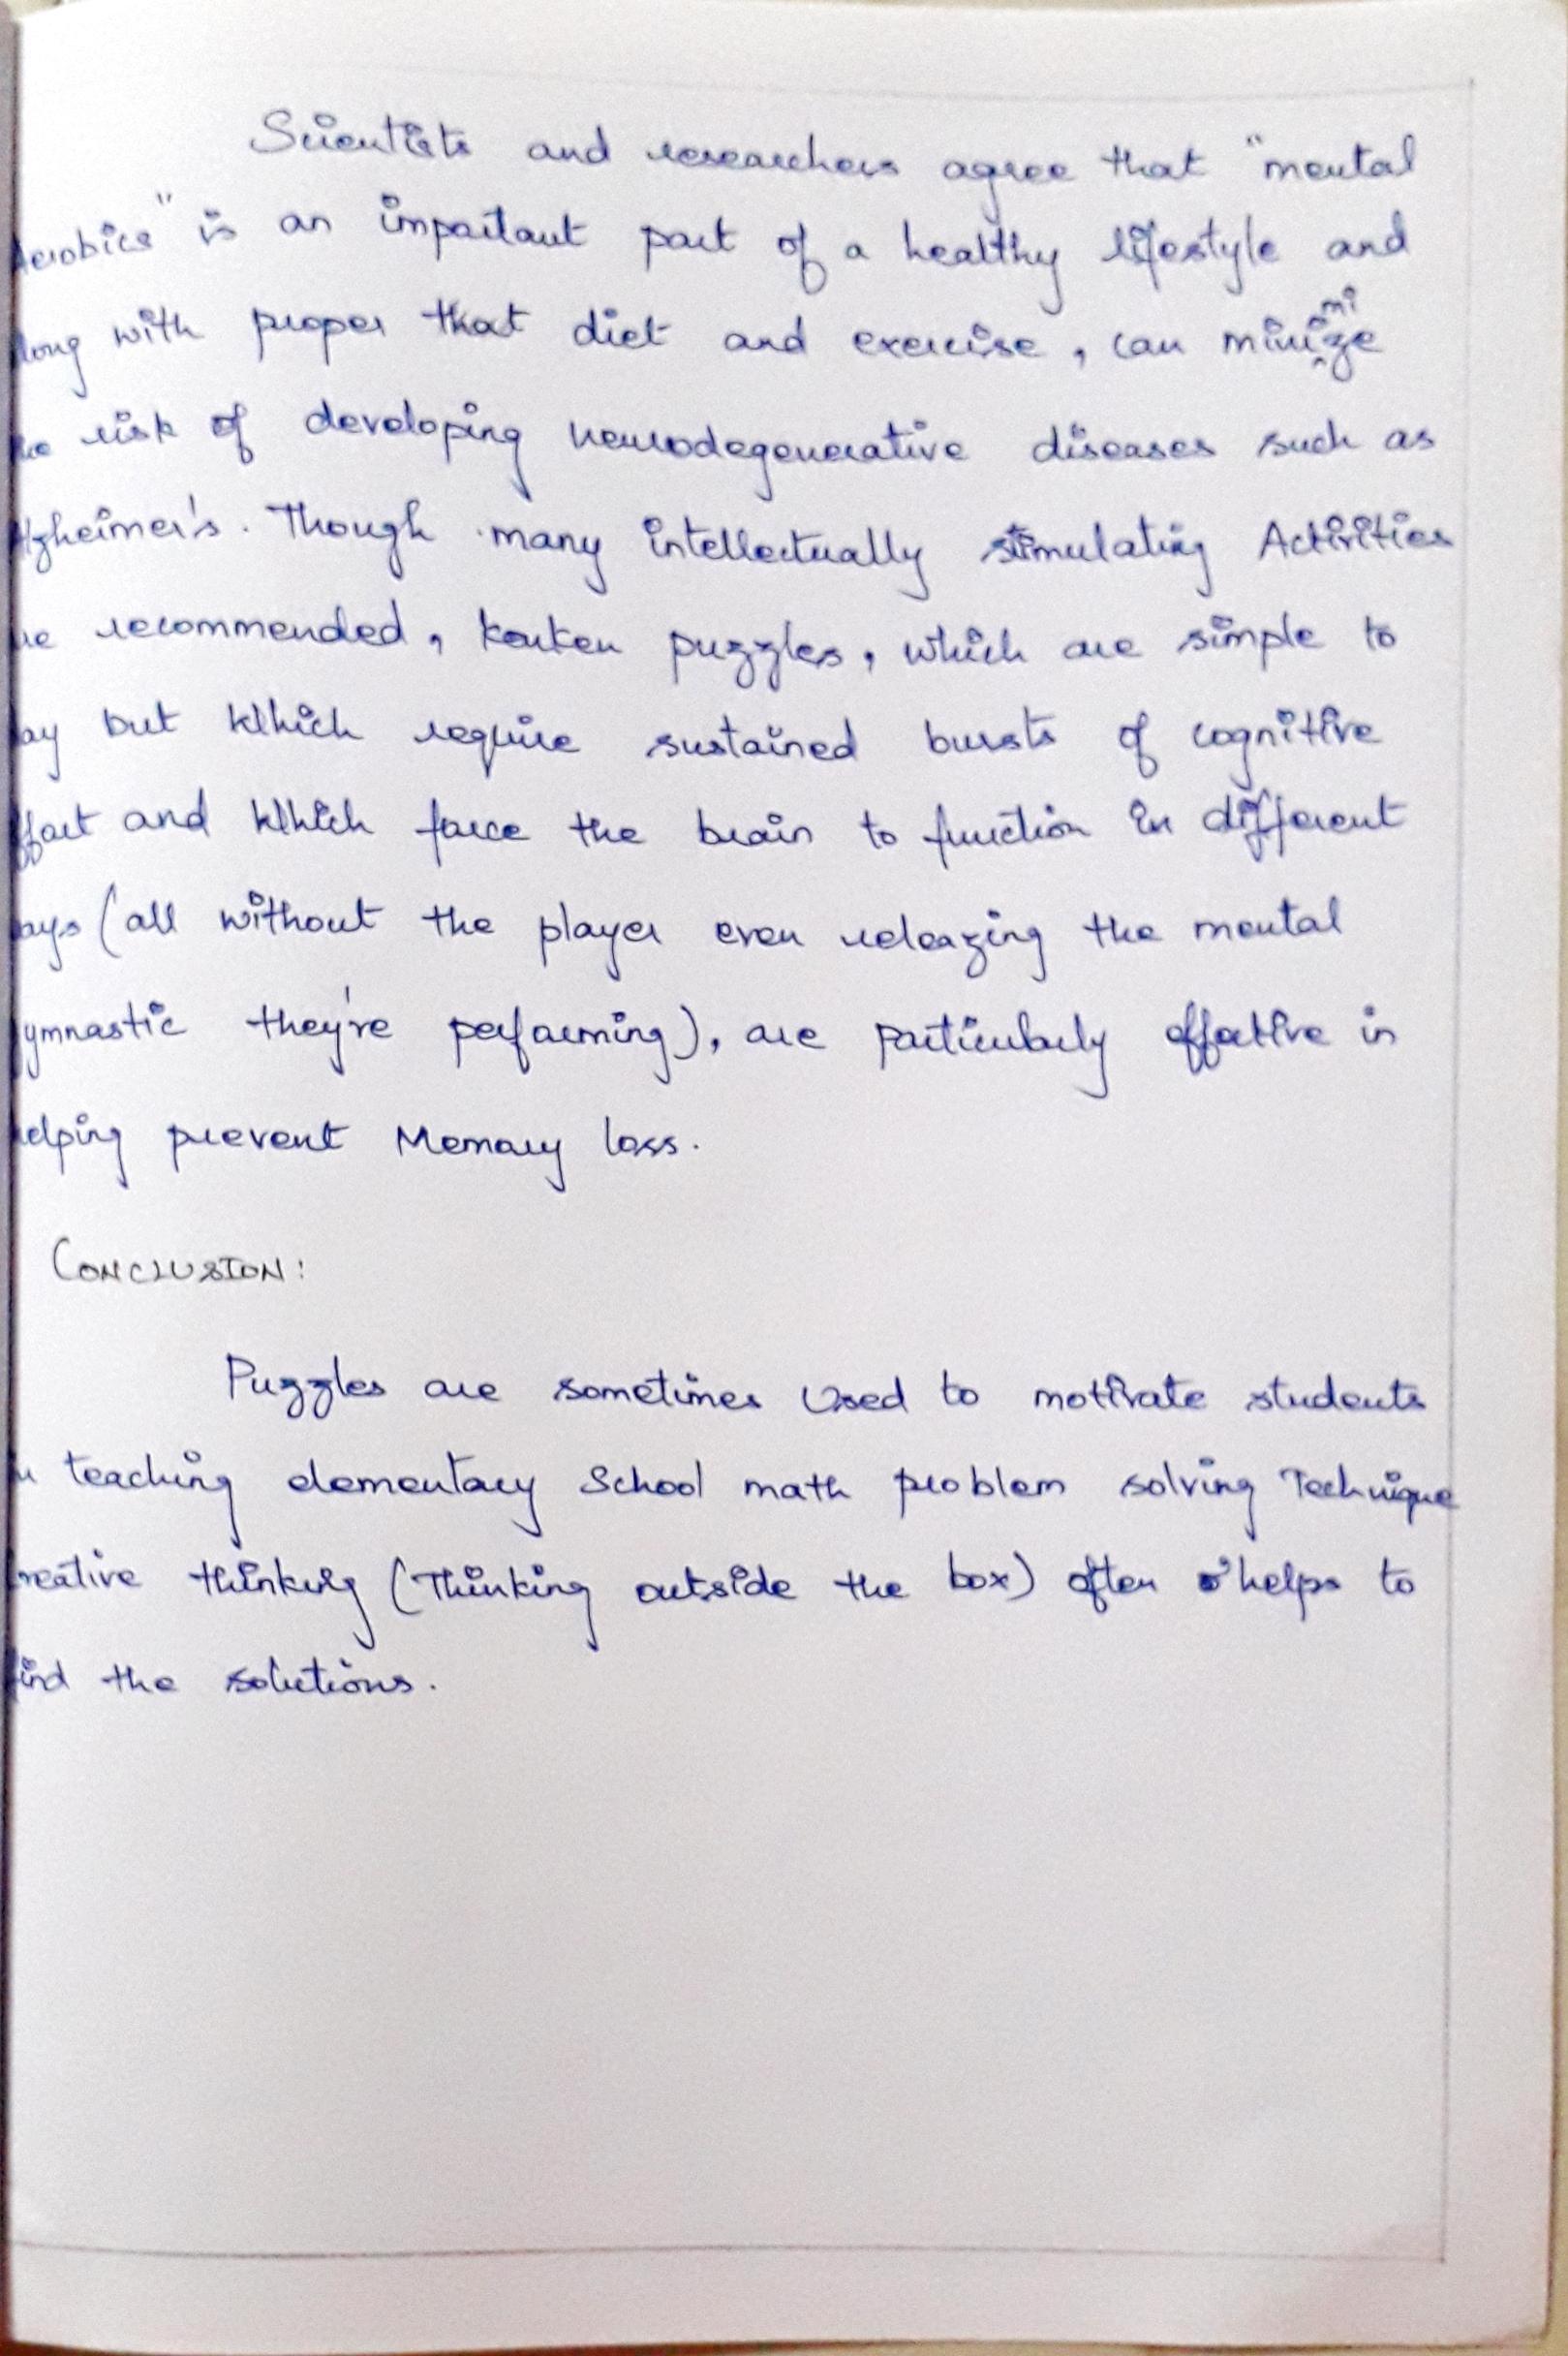 Scientists and researchers agree that "mental
Aerobics" is an important part of a healthy lifestyle and
long with proper that diet and exercise, can minimize
he risk of developing neurodegenerative diseases such as
lzheimer's. Though many intellectually stimulating Activities
re recommended, kenken puzzles, which are simple to
ay but Which require sustained bursts of cognitive
ffort and Which force the brain to function in different
ays (all without the player even releazing the mental
ymnastic they're performing), are particularly effective in
elping prevent Memory loss.
CONCLUSION:
Puzzles are sometimes Used to motivate students
n teaching elementary School math problem solving Technique
reative thinking (Thinking outside the box) often helps to
ind the solutions.